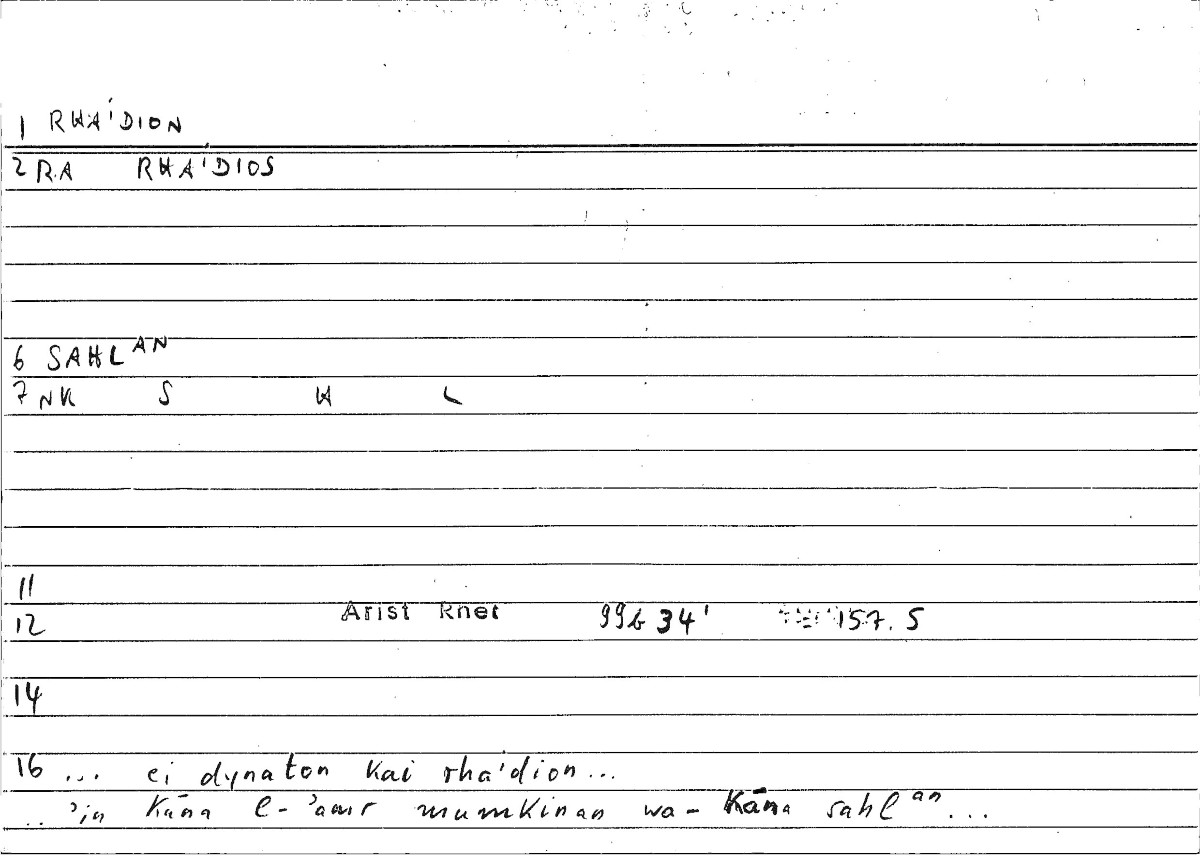 1 RHA'DION
2 RA RHA'DIOS
6 SAHLAN
7 NK S H L
11
12 Arist Rhet 99b 34' 157.5
14
16 ... ei dynaton kai rha'dion...
..'in kāna l-'amr mumkinan wa-kāna sahlan...